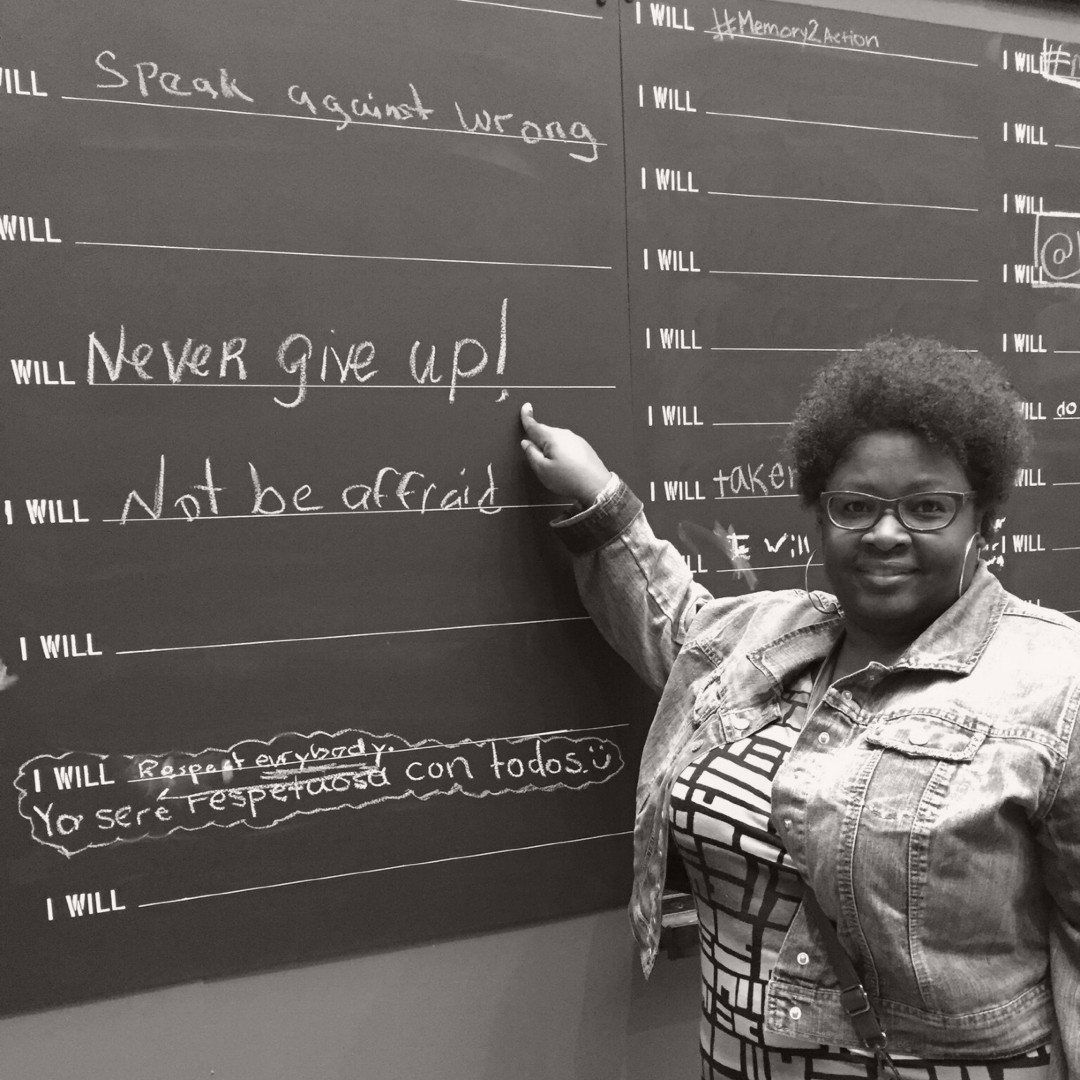 WILL Speak against wrong
WILL
WILL Never give up!
I WILL Not be affraid
I WILL
I WILL Respect evrybody.
Yo seré respetuosa con todos.
I WILL
I WILL #Memory2Action
I WILL
I WILL
I WILL
I WILL
I WILL
I WILL taken
I Will
I WILL
I WILL
I WILL
I WILL @
I WILL
do
I WILL